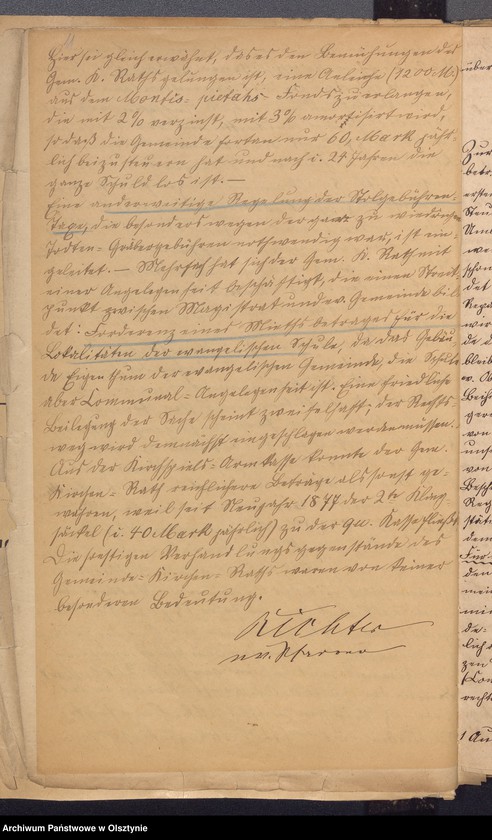 Hier sei gleich erwähnt, daß es den Bemühungen des
Gem. K. Raths gelungen ist, eine Anleihe (1200 M)
aus dem Montis-pietatis Fonds zu erlangen,
die mit 2% verzinst, mit 3% amortisirt wird,
so daß die Gemeinde fortan nur 60 Mark jähr-
lich beizusteuern hat und nach i. 24 Jahren die
ganze Schuld los ist. —
Eine anderweitige Regelung der Stolgebühren-
Taxe, die besonders wegen der ganz zu niedrigen
Todten-Gräbergebühren nothwendig war, ist ein-
geleitet. — Mehrfach hat sich der Gem. K. Rath mit
einer Angelegenheit beschäftigt, die einen Streit-
punkt zwischen Magistrat und ev. Gemeinde bil-
det: Forderung eines Miethsbetrages für die
Lokalitäten der evangelischen Schule, da das Gebäu-
de Eigenthum der evangelischen Gemeinde, die Schule
aber Communal-Angelegenheit ist. Eine friedliche
Beilegung der Sache scheint zweifelhaft; der Rechts-
weg wird demnächst eingeschlagen werden müssen.
Aus der Kirchspiels-Armkasse konnte der Gem.
Kirchen-Rath reichlichere Beträge als sonst ge-
währen, weil seit Neujahr 1877 der 2te Kling-
säckel (i. 40 Mark jährlich) zu der qu. Kasse fließt.
Die sonstigen Verhandlungsgegenstände des
Gemeinde-Kirchen-Raths waren von keiner
besonderen Bedeutung.
Richter
ev. Pfarrer
Archiwum Państwowe w Olsztynie